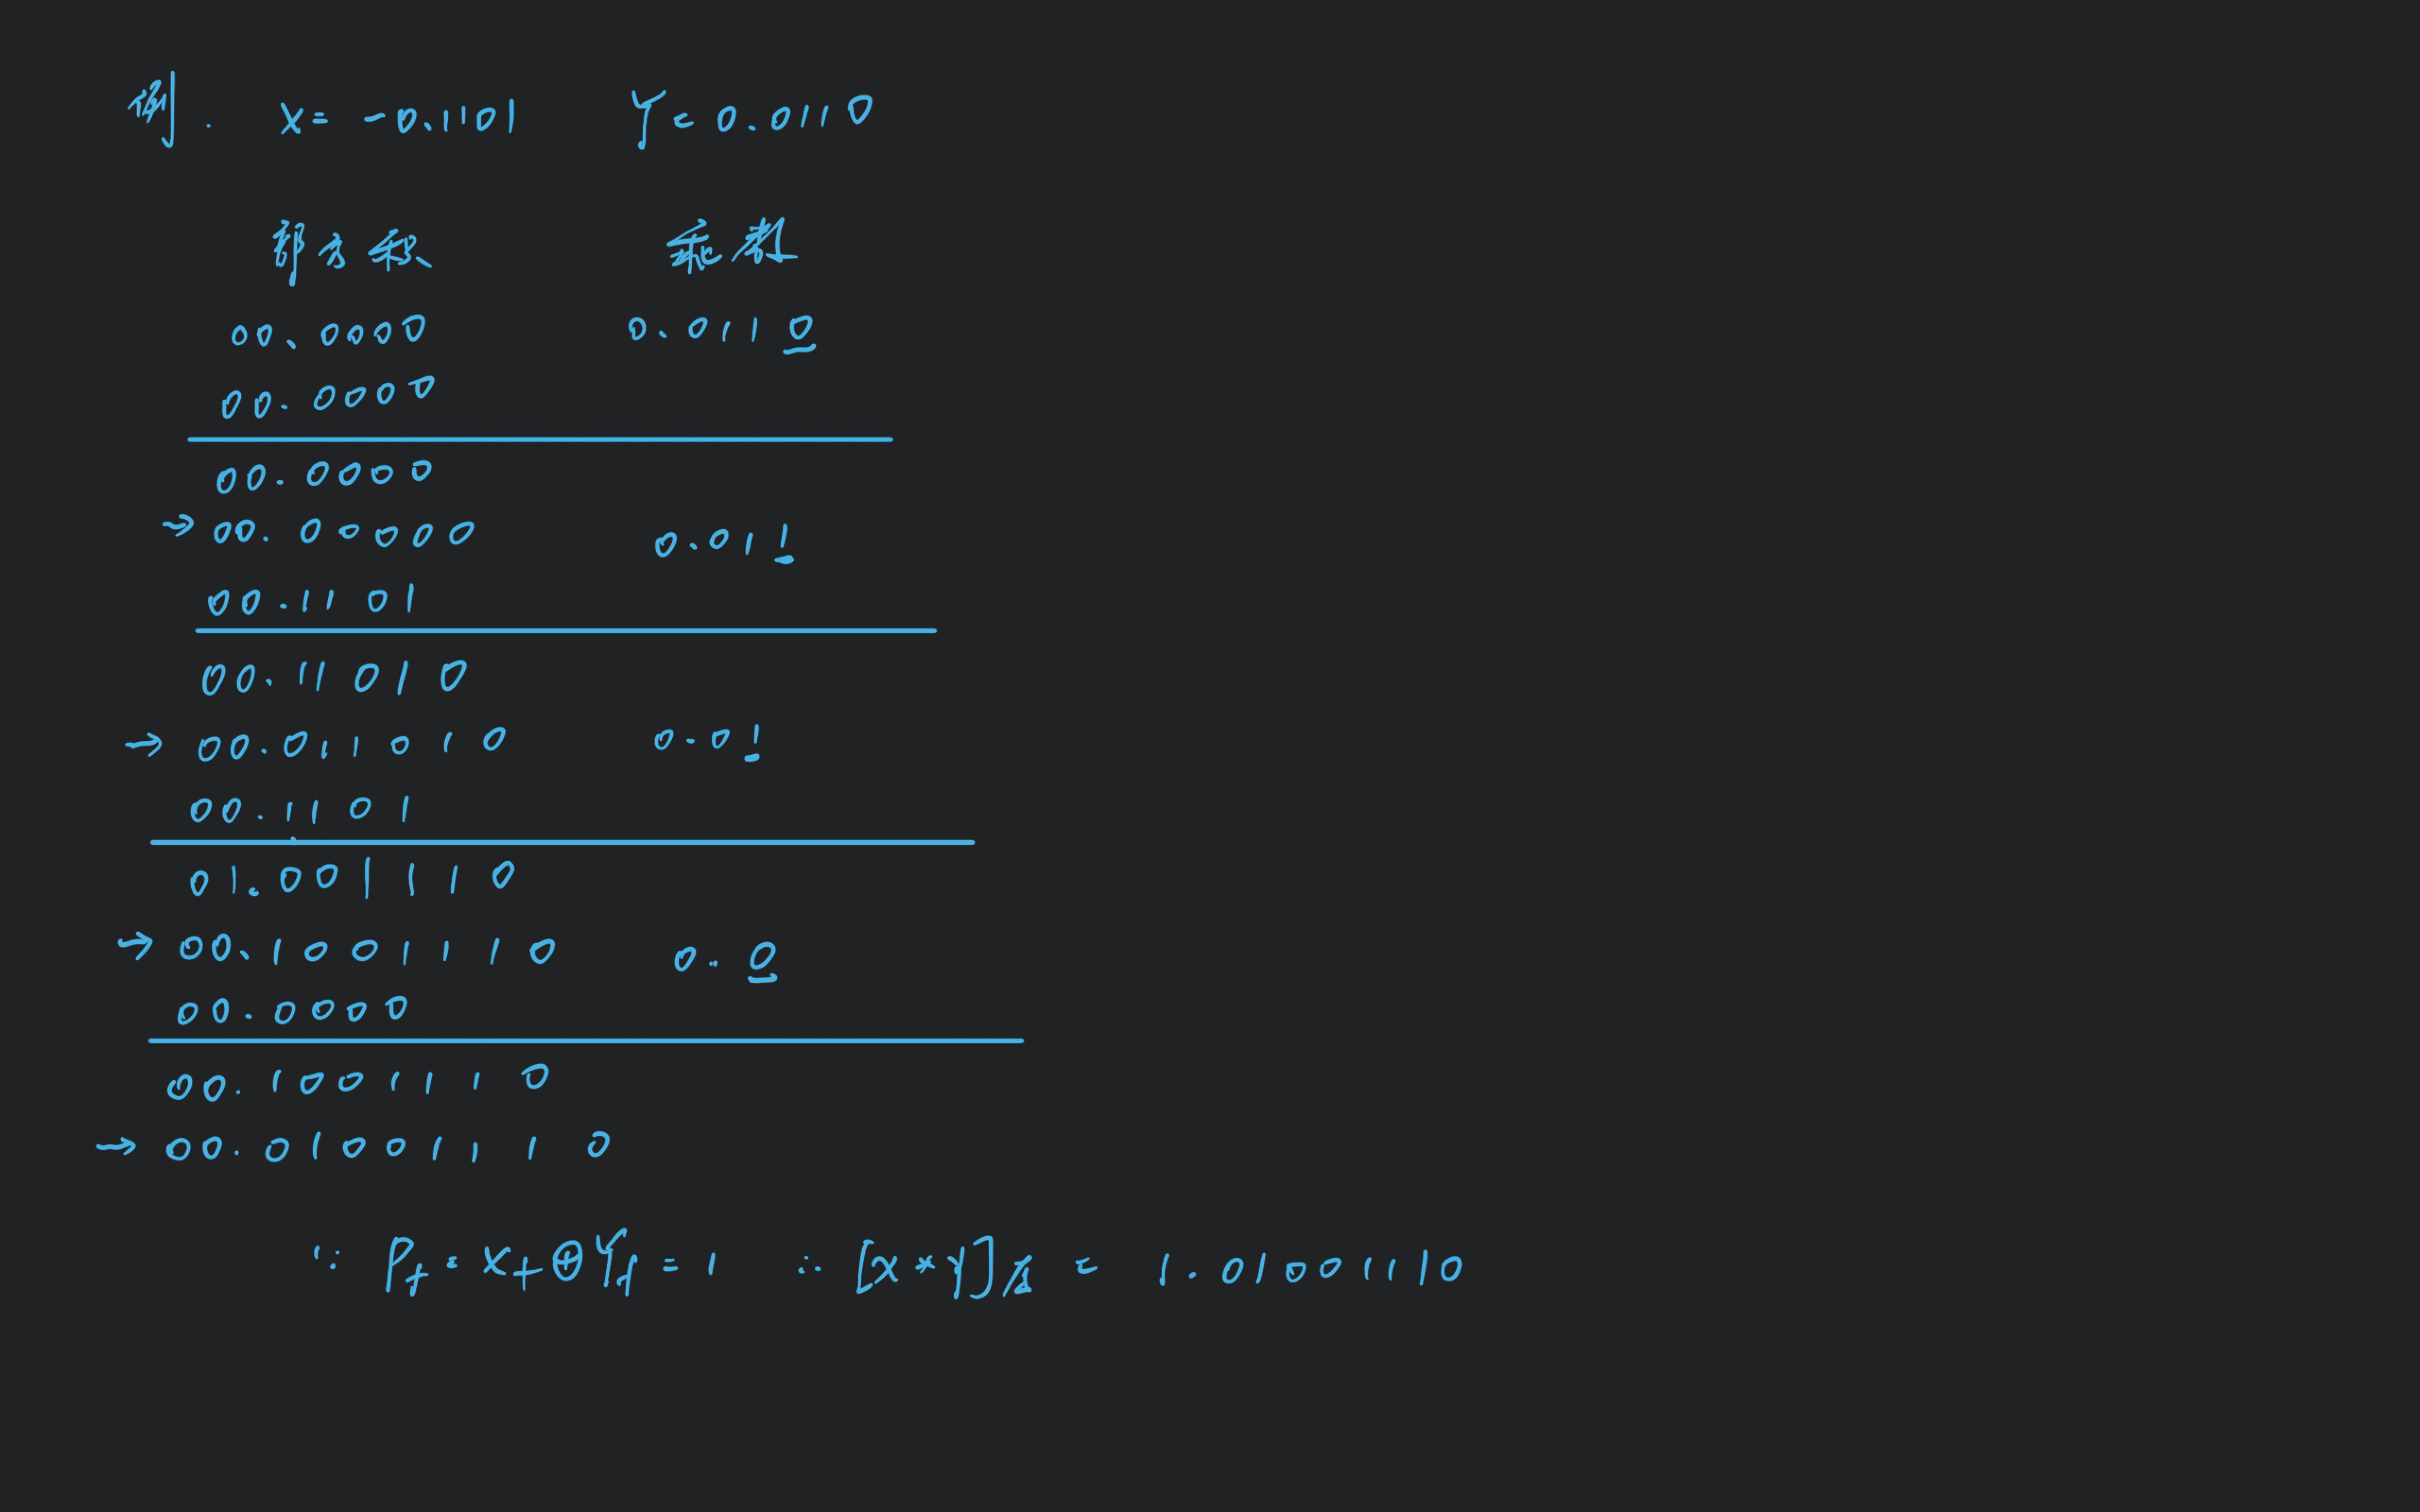 例. X= -0.1101 Y= 0.0110
部分积 乘数
00.0000 0.0110
00.0000
00.0000
→ 00.00000 0.011
00.1101
00.11010
→ 00.011010 0.01
00.1101
01.001110
→ 00.1001110 0.0
00.0000
00.1001110
→ 00.01001110
∵ Pf = Xf⊕Yf = 1 ∴ [x*y]原 = 1.01001110